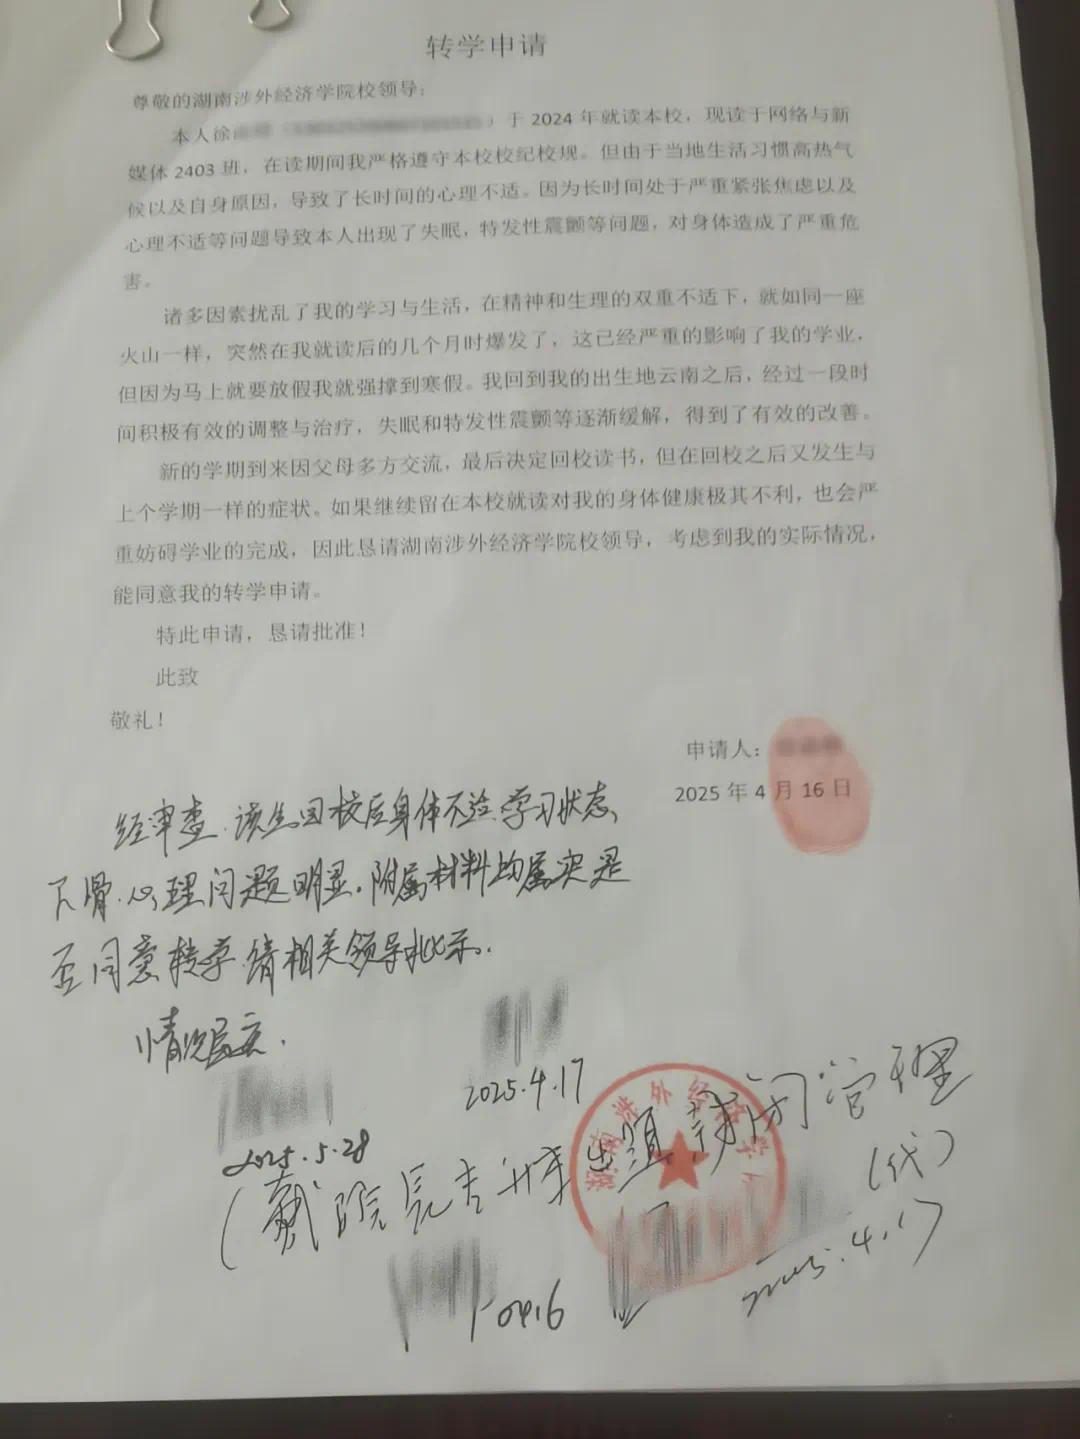 转学申请
尊敬的湖南涉外经济学院校领导：
本人徐 ）于 2024 年就读本校，现读于网络与新
媒体 2403 班，在读期间我严格遵守本校校纪校规。但由于当地生活习惯高热气
候以及自身原因，导致了长时间的心理不适。因为长时间处于严重紧张焦虑以及
心理不适等问题导致本人出现了失眠，特发性震颤等问题，对身体造成了严重危
害。
诸多因素扰乱了我的学习与生活，在精神和生理的双重不适下，就如同一座
火山一样，突然在我就读后的几个月时爆发了，这已经严重的影响了我的学业，
但因为马上就要放假我就强撑到寒假。我回到我的出生地云南之后，经过一段时
间积极有效的调整与治疗，失眠和特发性震颤等逐渐缓解，得到了有效的改善。
新的学期到来因父母多方交流，最后决定回校读书，但在回校之后又发生与
上个学期一样的症状。如果继续留在本校就读对我的身体健康极其不利，也会严
重妨碍学业的完成，因此恳请湖南涉外经济学院校领导，考虑到我的实际情况，
能同意我的转学申请。
特此申请，恳请批准！
此致
敬礼！
申请人：
2025 年 4 月 16 日
经审查，该生回校后身体不适，学习状态
下滑，心理问题明显，附属材料均属实是
否同意转学请相关领导批示。
情况属实．
2025.4.17
2025.5.28
湖南涉外经济学
（戴院长 出 管理
（代）
2025.4.17